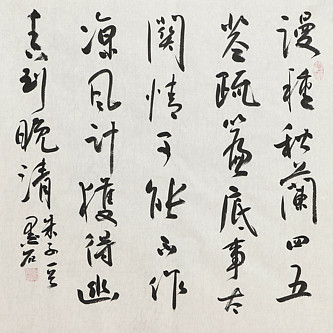 謾種秋蘭四五
莖疏簾底事太
關情可能不作
涼風計護得幽
香到晚清
朱子詩
墨石